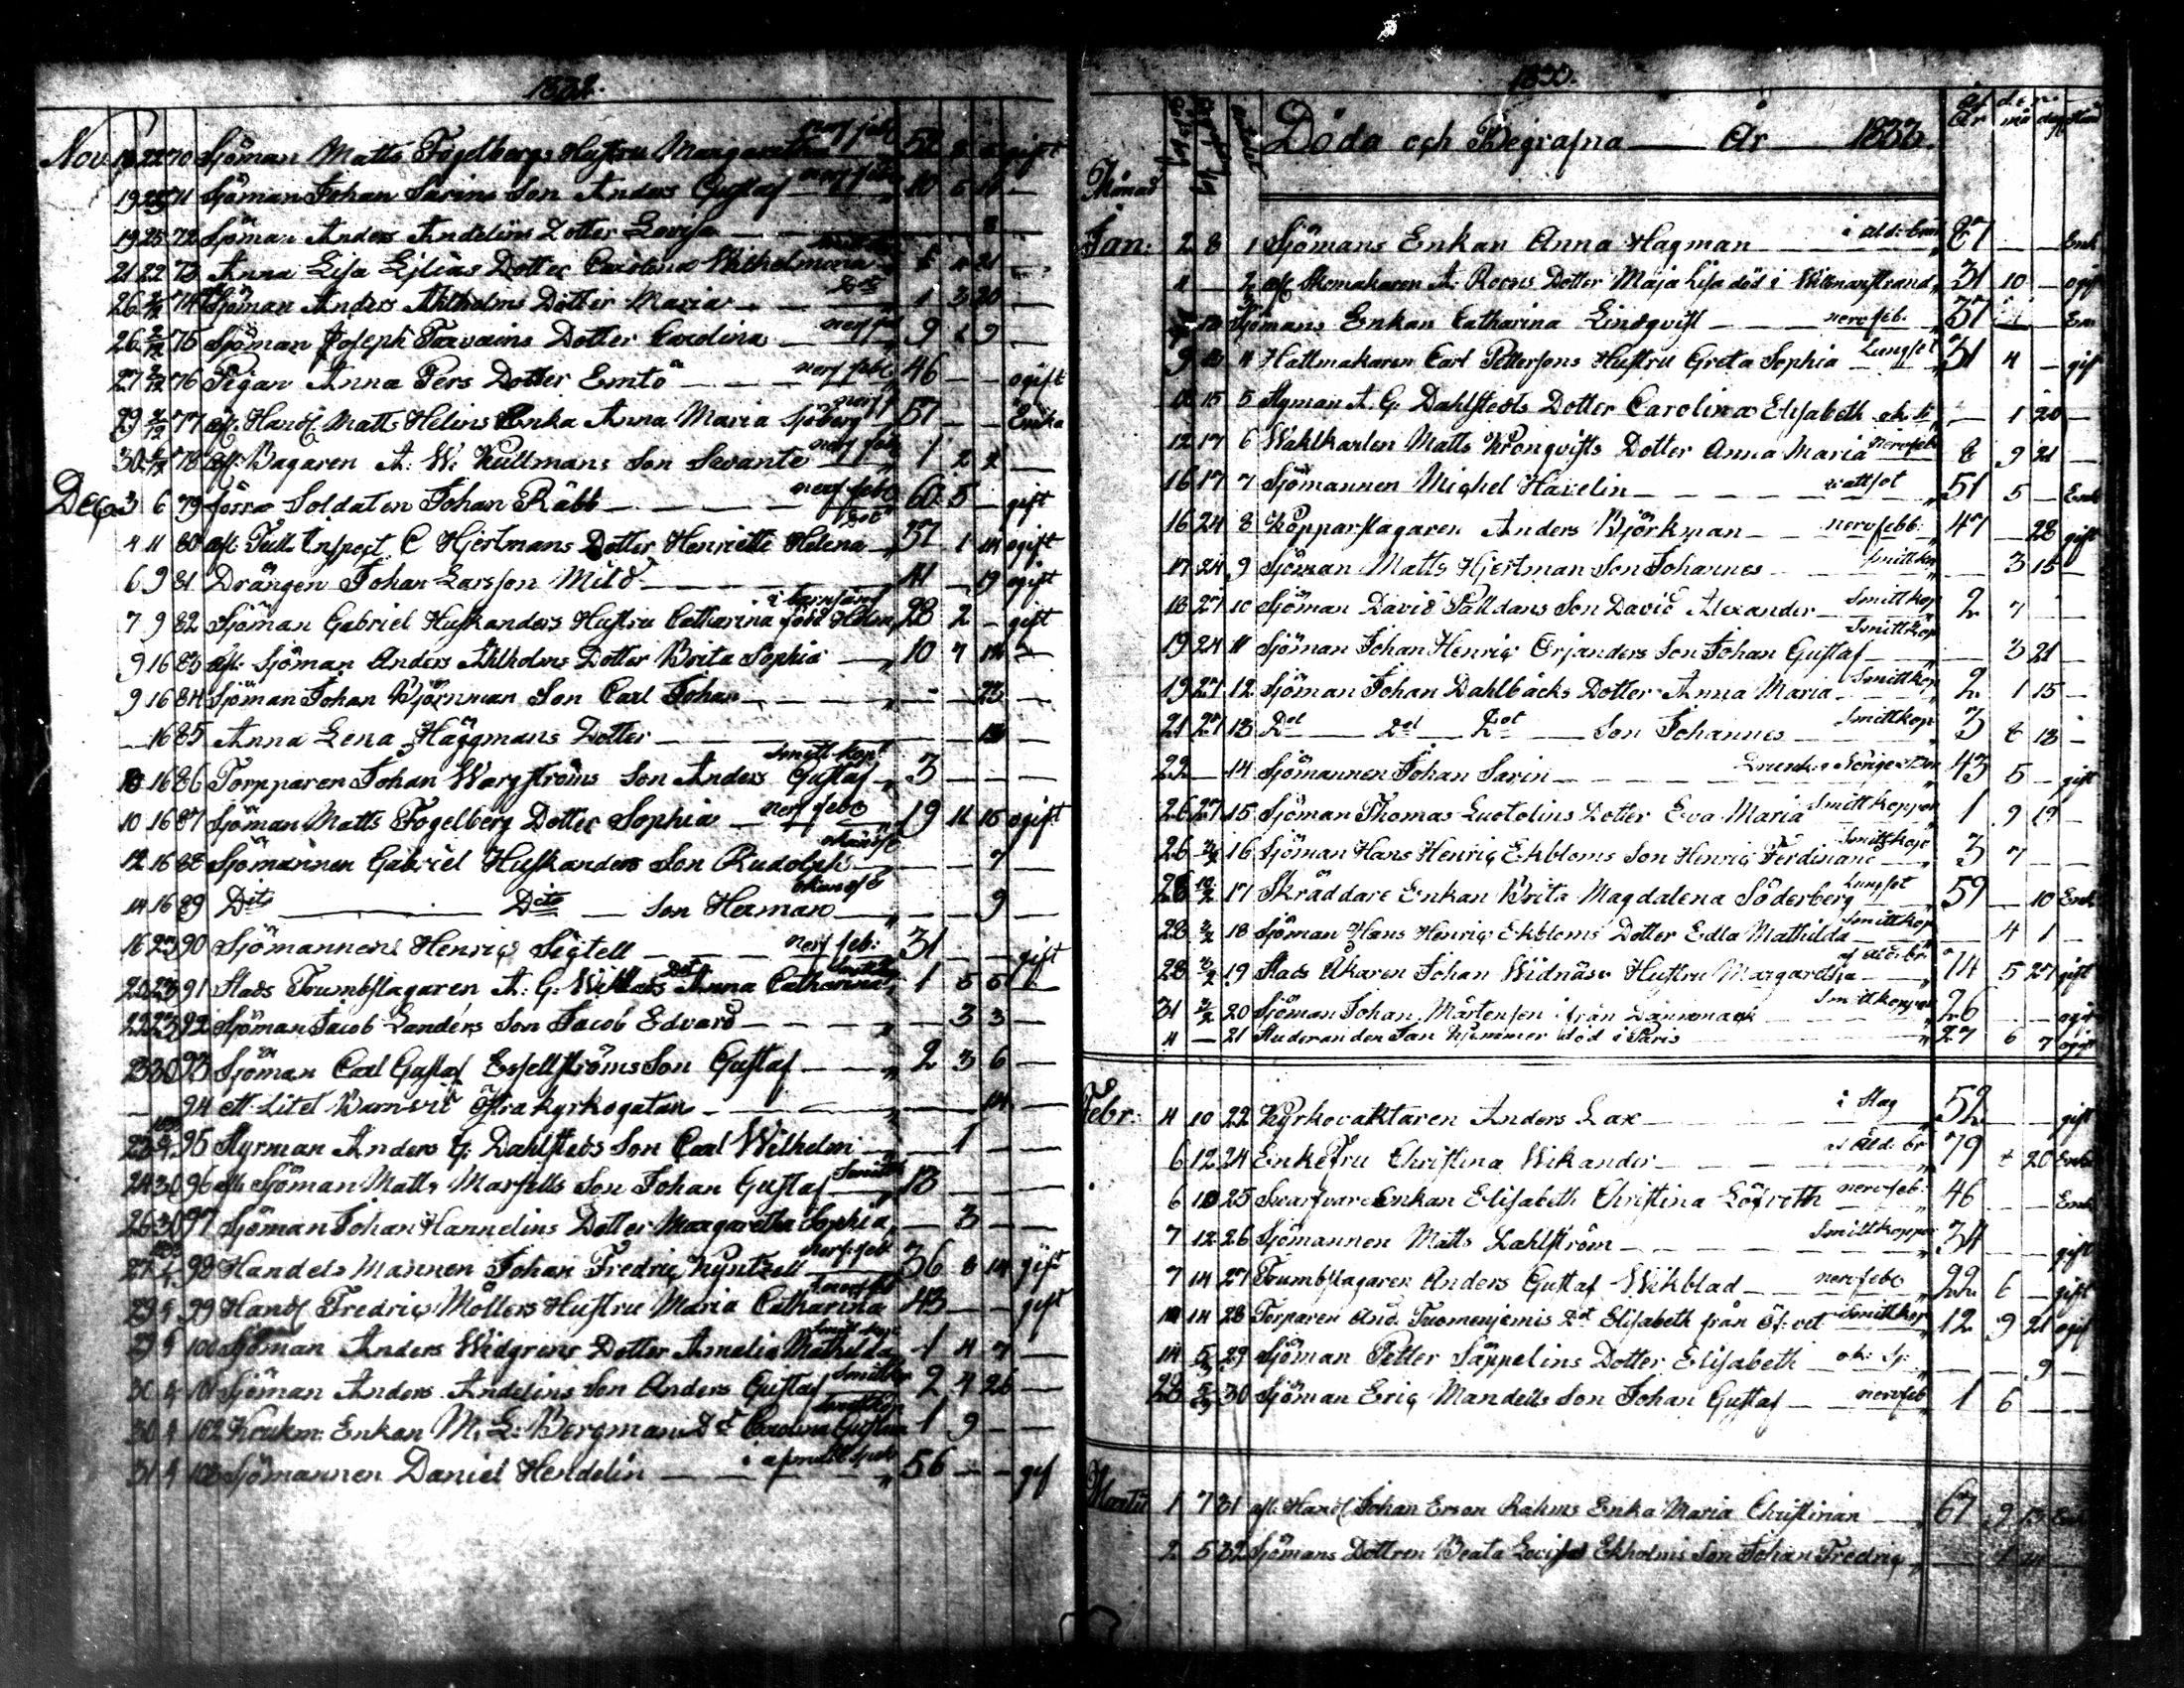 1832.
Nov. 16 22 70 Sjöman Matts Fogelbergs Hustru Margaretha nerf feb 52 gift
19 25 71 Sjöman Johan Sarins Son Anders Gustaf nerf feb 10 5 10 —
19 25 72 Sjöman Anders Andelins Dotter Lovisa — — 8 —
21 22 73 Anna Lisa Eliæ Dotter Carolina Wilhelmina 21 —
26 2/12 74 Sjöman Anders Ahlholms Dotter Maria — Dito 1 3 20 —
26 2/12 75 Sjöman Joseph Dotter Carolina — nerf fe 9 6 9 —
27 2/12 76 Pigan Anna Pers Dotter Emtö — nerf feb 46 — — ogift
29 2/12 77 afl. Handl. Matts Helins Enka Anna Maria Sjöberg nerf f 57 — — Enka
30 2/12 78 afl. Bagaren A. W. Kullmans Son Sevante nerf feb 1 2 2 —
Dec. 3 6 79 förra Soldaten Johan Räbb — nerf feb 60 5 — gift
4 11 80 afl. Tull Inspect. C Hjertmans Dotter Henriette Helena Dito 37 1 14 ogift
6 9 81 Drängen Johan Larsson Mild — 41 — 19 ogift
7 9 82 Sjöman Gabriel Huskanders Hustru Catharina född Helen i barnsäng 28 2 — gift
9 16 83 afl. Sjöman Anders Ahlholms Dotter Brita Sophia — 10 7 14 —
9 16 84 Sjöman Johan Björnman Son Carl Johan — — — 23 —
— 16 85 Anna Lena Häggmans Dotter — — 13 —
10 16 86 Torpparen Johan Wargströms Son Anders Gustaf Smitt kop. 3 — — —
10 16 87 Sjöman Matts Fogelberg Dotter Sophia — nerf feb 19 11 15 ogift
12 16 88 Sjömannen Gabriel Huskanders Son Rudolph okänd sj — — 7 —
14 16 89 Dito — Dito — Son Herman okänd sj — — 9 —
16 23 90 Sjömannen Henric Sigtell — nerf feb: 31 — — gift
20 23 91 Stads Trumbslagaren A. G. Dot Anna Catharina 1 5 5 —
22 23 92 Sjöman Jacob Landérs Son Jacob Edvard — — 3 3 —
23 30 93 Sjöman Carl Gustaf Esfellströms Son Gustaf — 2 3 6 —
— 94 Ett Litet Barn vid Östra kyrkogatan — — — 14 —
23 95 Styrman Anders G. Dahlsteds Son Carl Wilhelm — — 1 — —
24 30 96 afl. Sjöman Matts Marsells Son Johan Gustaf Smittk 13 — — —
26 30 97 Sjöman Johan Hannelins Dotter Margaretha Sophia — 3 — —
27 98 Handels Mannen Johan Fredric Kyntzell nerf. feb 36 8 14 gift
29 99 Handl Fredric Möllers Hustru Maria Catharina nerf feb 43 — — gift
29 100 Sjöman Anders Widgrens Dotter Amalia Mathilda Smitt kop 1 4 7 —
30 101 Sjöman Anders Andelins Son Anders Gustaf Smittkop 2 4 26 —
30 102 Krukm. Enkan M. L. Bergmans Dt Carolina Gustava Smittkop 1 9 — —
31 103 Sjömannen Daniel Hendelin — 56 — — gif
1833.
Månad Döda och Begrafna — År — 1833. År må dag
Jan: 2 8 1 Sjömans Enkan Anna Hagman — i ålde bräck 87 — — Enk
4 — 2 afl. Skomakaren A. Roos Dotter Maja Lisa död i Wilmanstrand 31 10 — ogif
3 Sjömans Enkan Catharina Lindqvist — nervfeb. 37 — — En
9 13 4 Hattmakaren Carl Pettersons Hustru Greta Sophia Lungsot 51 4 — gif
15 5 Styman A. G. Dahlstedts Dotter Carolina Elisabeth — 1 20 —
12 17 6 Wahlkarlen Matts Kronqvists Dotter Anna Maria nervfeb 8 9 21 —
16 17 7 Sjömannen Michel Havelin — wattsot 51 5 — Enk
16 24 8 Kopparslagaren Anders Björkman — nervfebb. 47 — 28 gift
17 24 9 Sjöman Matts Hjertman Son Johannes — Smittkop — 3 15 —
18 27 10 Sjöman David Palldans Son David Alexander Smittkop 2 7 —
19 24 11 Sjöman Johan Henric Orjanders Son Johan Gustaf Smittkop — 3 21 —
19 27 12 Sjöman Johan Dahlbäcks Dotter Anna Maria Smittkop 2 1 15 —
21 27 13 Dot — Dot — Dot — Son Johannes Smittkop 3 8 13 —
22 — 14 Sjömannen Johan Sarin — Drunk. 43 5 — gift
26 27 15 Sjöman Thomas Luotolins Dotter Eva Maria Smittkoppor 1 9 19 —
26 3/2 16 Sjöman Hans Henric Ekbloms Son Henric Ferdinand Smittkop 3 7 — —
28 10/2 17 Skräddare Enkan Brita Magdalena Söderberg Lungsot 59 — 10 Enk
28 3/2 18 Sjöman Hans Henric Ekbloms Dotter Edla Mathilda Smittkop — 4 1 —
28 3/2 19 Stads Åkaren Johan Widnäs Hustru Margaretha af ålde br 74 5 27 gift
31 3/2 20 Sjöman Johan Mårtensen ifrån Dannmark Smittkoppor 26 — ogift
4 — 21 Studeranden Jan död i Paris 27 6 7 ogift
Febr: 4 10 22 Kyrkovaktaren Anders Lax — i Slag 52 — — gift
6 12 24 Enkefru Christina Wikander — af ålde br 79 8 20 Enk
6 10 25 Swarfvare Enkan Elisabeth Christina Löfroth nervfeb. 46 — — Enk
7 12 26 Sjömannen Matts Dahlström — Smittkoppor 34 — — gift
7 14 27 Trumbslagaren Anders Gustaf Wikblad — nervfeb 22 6 — gift
14 28 Torparen And. Tuomenjemis Dot Elisabeth från Öf: vet Smittkop 12 9 21 ogif
14 5/3 29 Sjöman Petter Säppelins Dotter Elisabeth — ok: Sj: — — 9 —
28 5/3 30 Sjöman Eric Mandells Son Johan Gustaf — nervfeb 1 6 — —
Martii 1 7 31 afl. Handl Johan Erson Rahms Enka Maria Christinian — 67 9 13 Enk
2 5 32 Sjömans Dottren Beata Lovisa Ekholms Son Johan Fredric —